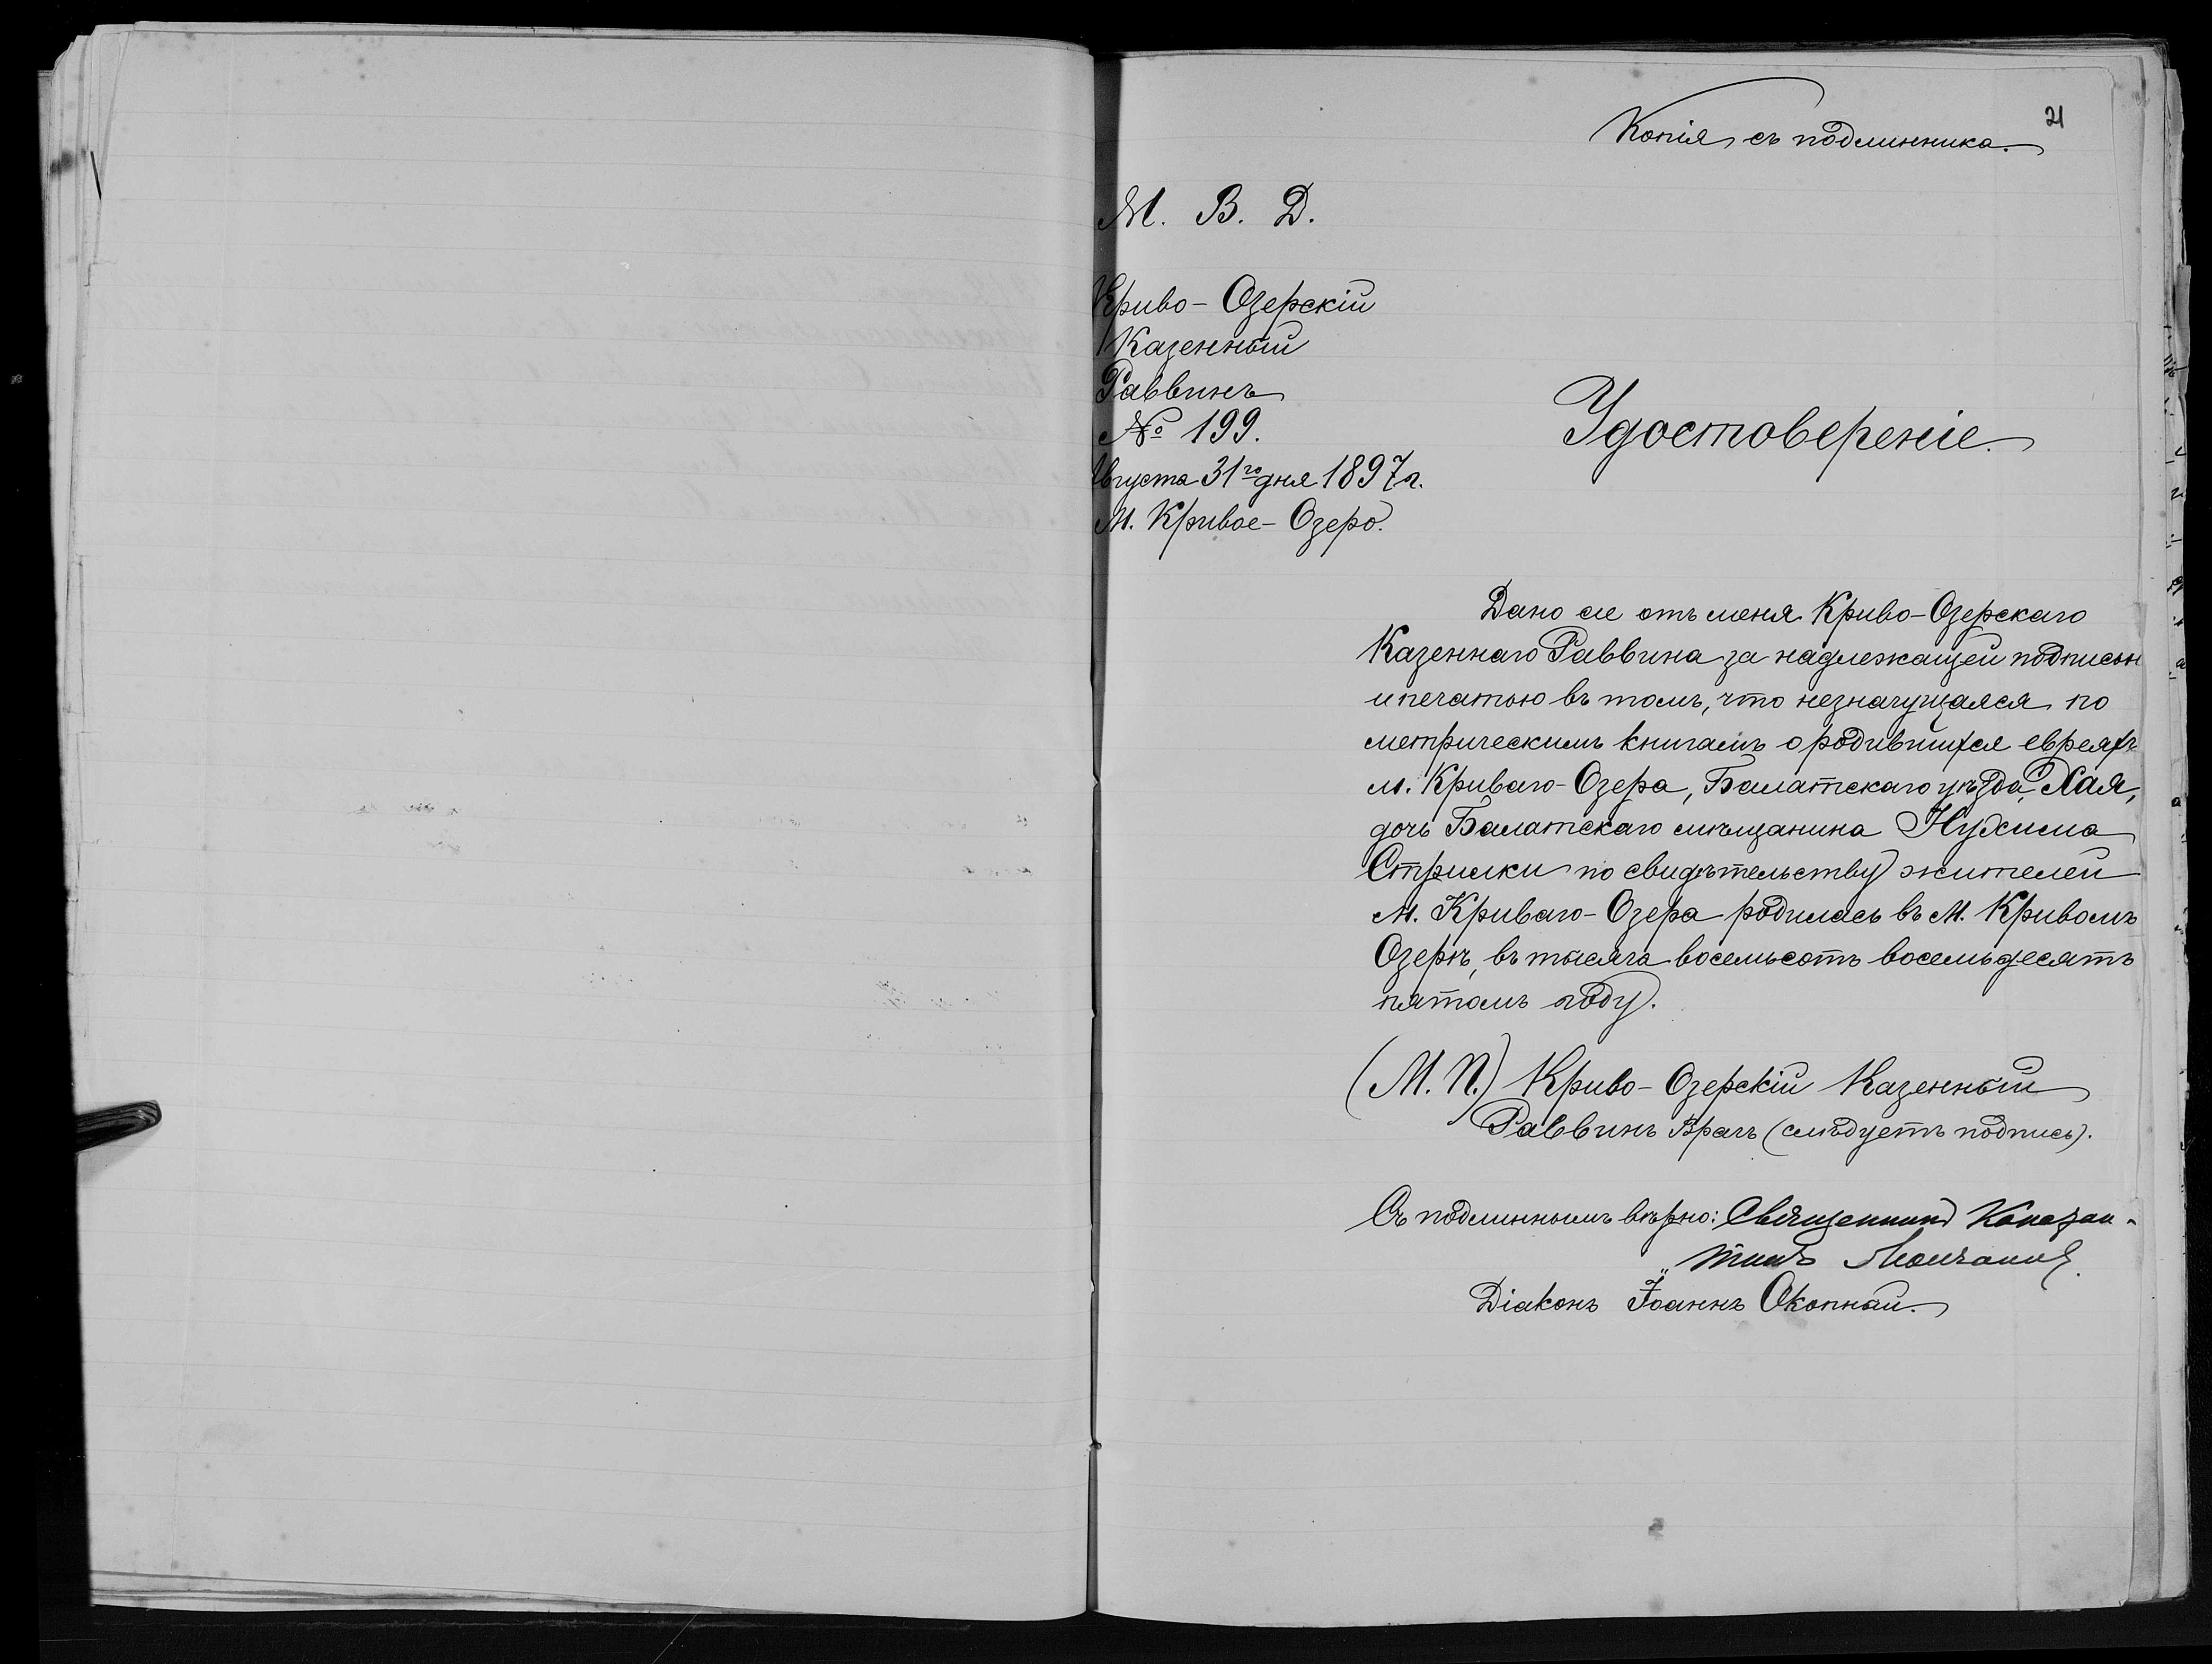 21
Копія съ подлинника.
М. В. Д.
Криво-Озерскій
Казенный
Раввинъ
№ 199.
Августа 31го дня 1897 г.
М. Кривое-Озеро.
Удостовереніе.
Дано сіе отъ меня Криво-Озерскаго
Казеннаго Раввина за надлежащей подписью
и печатью въ томъ, что незначущаяся по
метрическимъ книгамъ о родившихся евреяхъ
м. Криваго-Озера, Балтскаго уѣзда, Хая,
дочь Балтскаго мѣщанина Нухима
Стрилки по свидѣтельству жителей
м. Криваго-Озера родилась въ М. Кривомъ
Озерѣ, въ тысяча восемьсотъ восемьдесятъ
пятомъ году.
(М. П.) Криво-Озерскій Казенный
Раввинъ Врачъ (слѣдуетъ подпись).
Съ подлиннымъ вѣрно: Священникъ Констан-
тинъ
Діаконъ Іоаннъ Окопный.